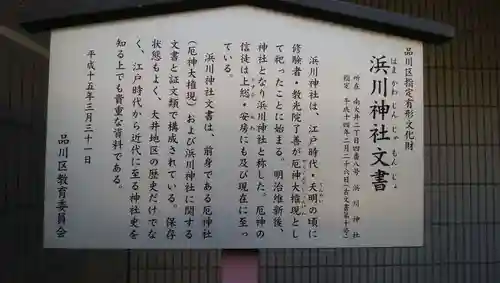 品川区指定有形文化財
はまかわじんじゃもんじょ
浜川神社文書
所在 南大井二丁目四番八号 浜川神社
指定 平成十四年二月二十六日(古文書第十号)
浜川神社は、江戸時代・天明の頃に
修験者・教光院了善が厄神大権現とし
て祀ったことに始まる。明治維新後、
神社となり浜川神社と称した。厄神の
信徒は上総・安房にも及び現在に至っ
ている。
浜川神社文書は、前身である厄神社
(厄神大権現)および浜川神社に関する
文書と証文類で構成されている。保存
状態もよく、大井地区の歴史だけでな
く、江戸時代から近代に至る神社史を
知る上でも貴重な資料である。
平成十五年三月三十一日
品川区教育委員会